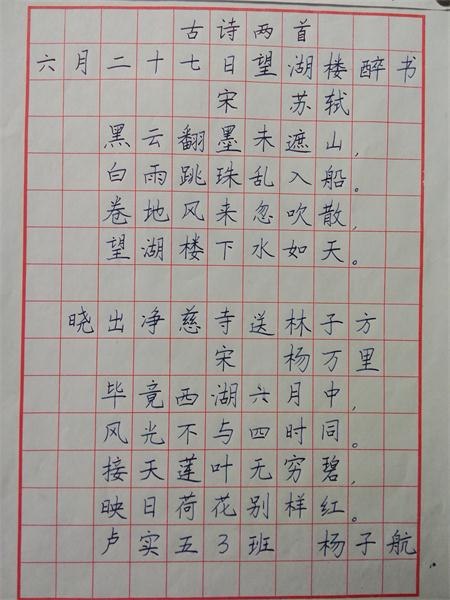 古诗两首
六月二十七日望湖楼醉书
宋 苏轼
黑云翻墨未遮山,
白雨跳珠乱入船。
卷地风来忽吹散,
望湖楼下水如天。
晓出净慈寺送林子方
宋 杨万里
毕竟西湖六月中,
风光不与四时同。
接天莲叶无穷碧,
映日荷花别样红。
卢实五3班 杨子航